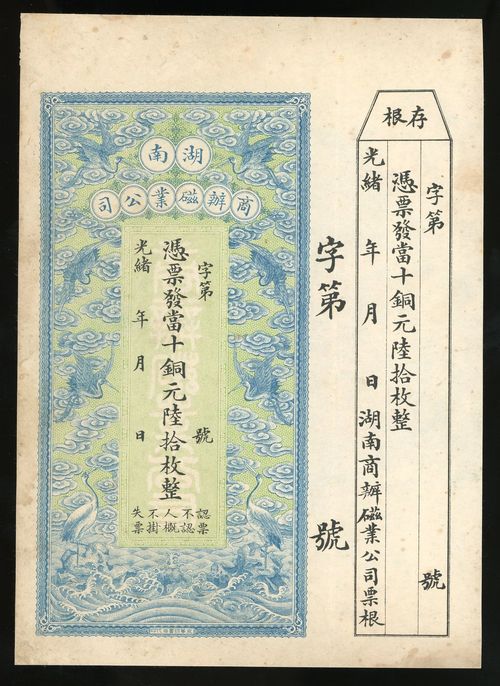 存根
字第 號
憑票發當十銅元陸拾枚整
光緒 年 月 日 湖南商辦磁業公司票根
字第 號
湖南
商辦磁業公司
字第 號
憑票發當十銅元陸拾枚整
光緒 年 月 日
認票不認人概不掛失票